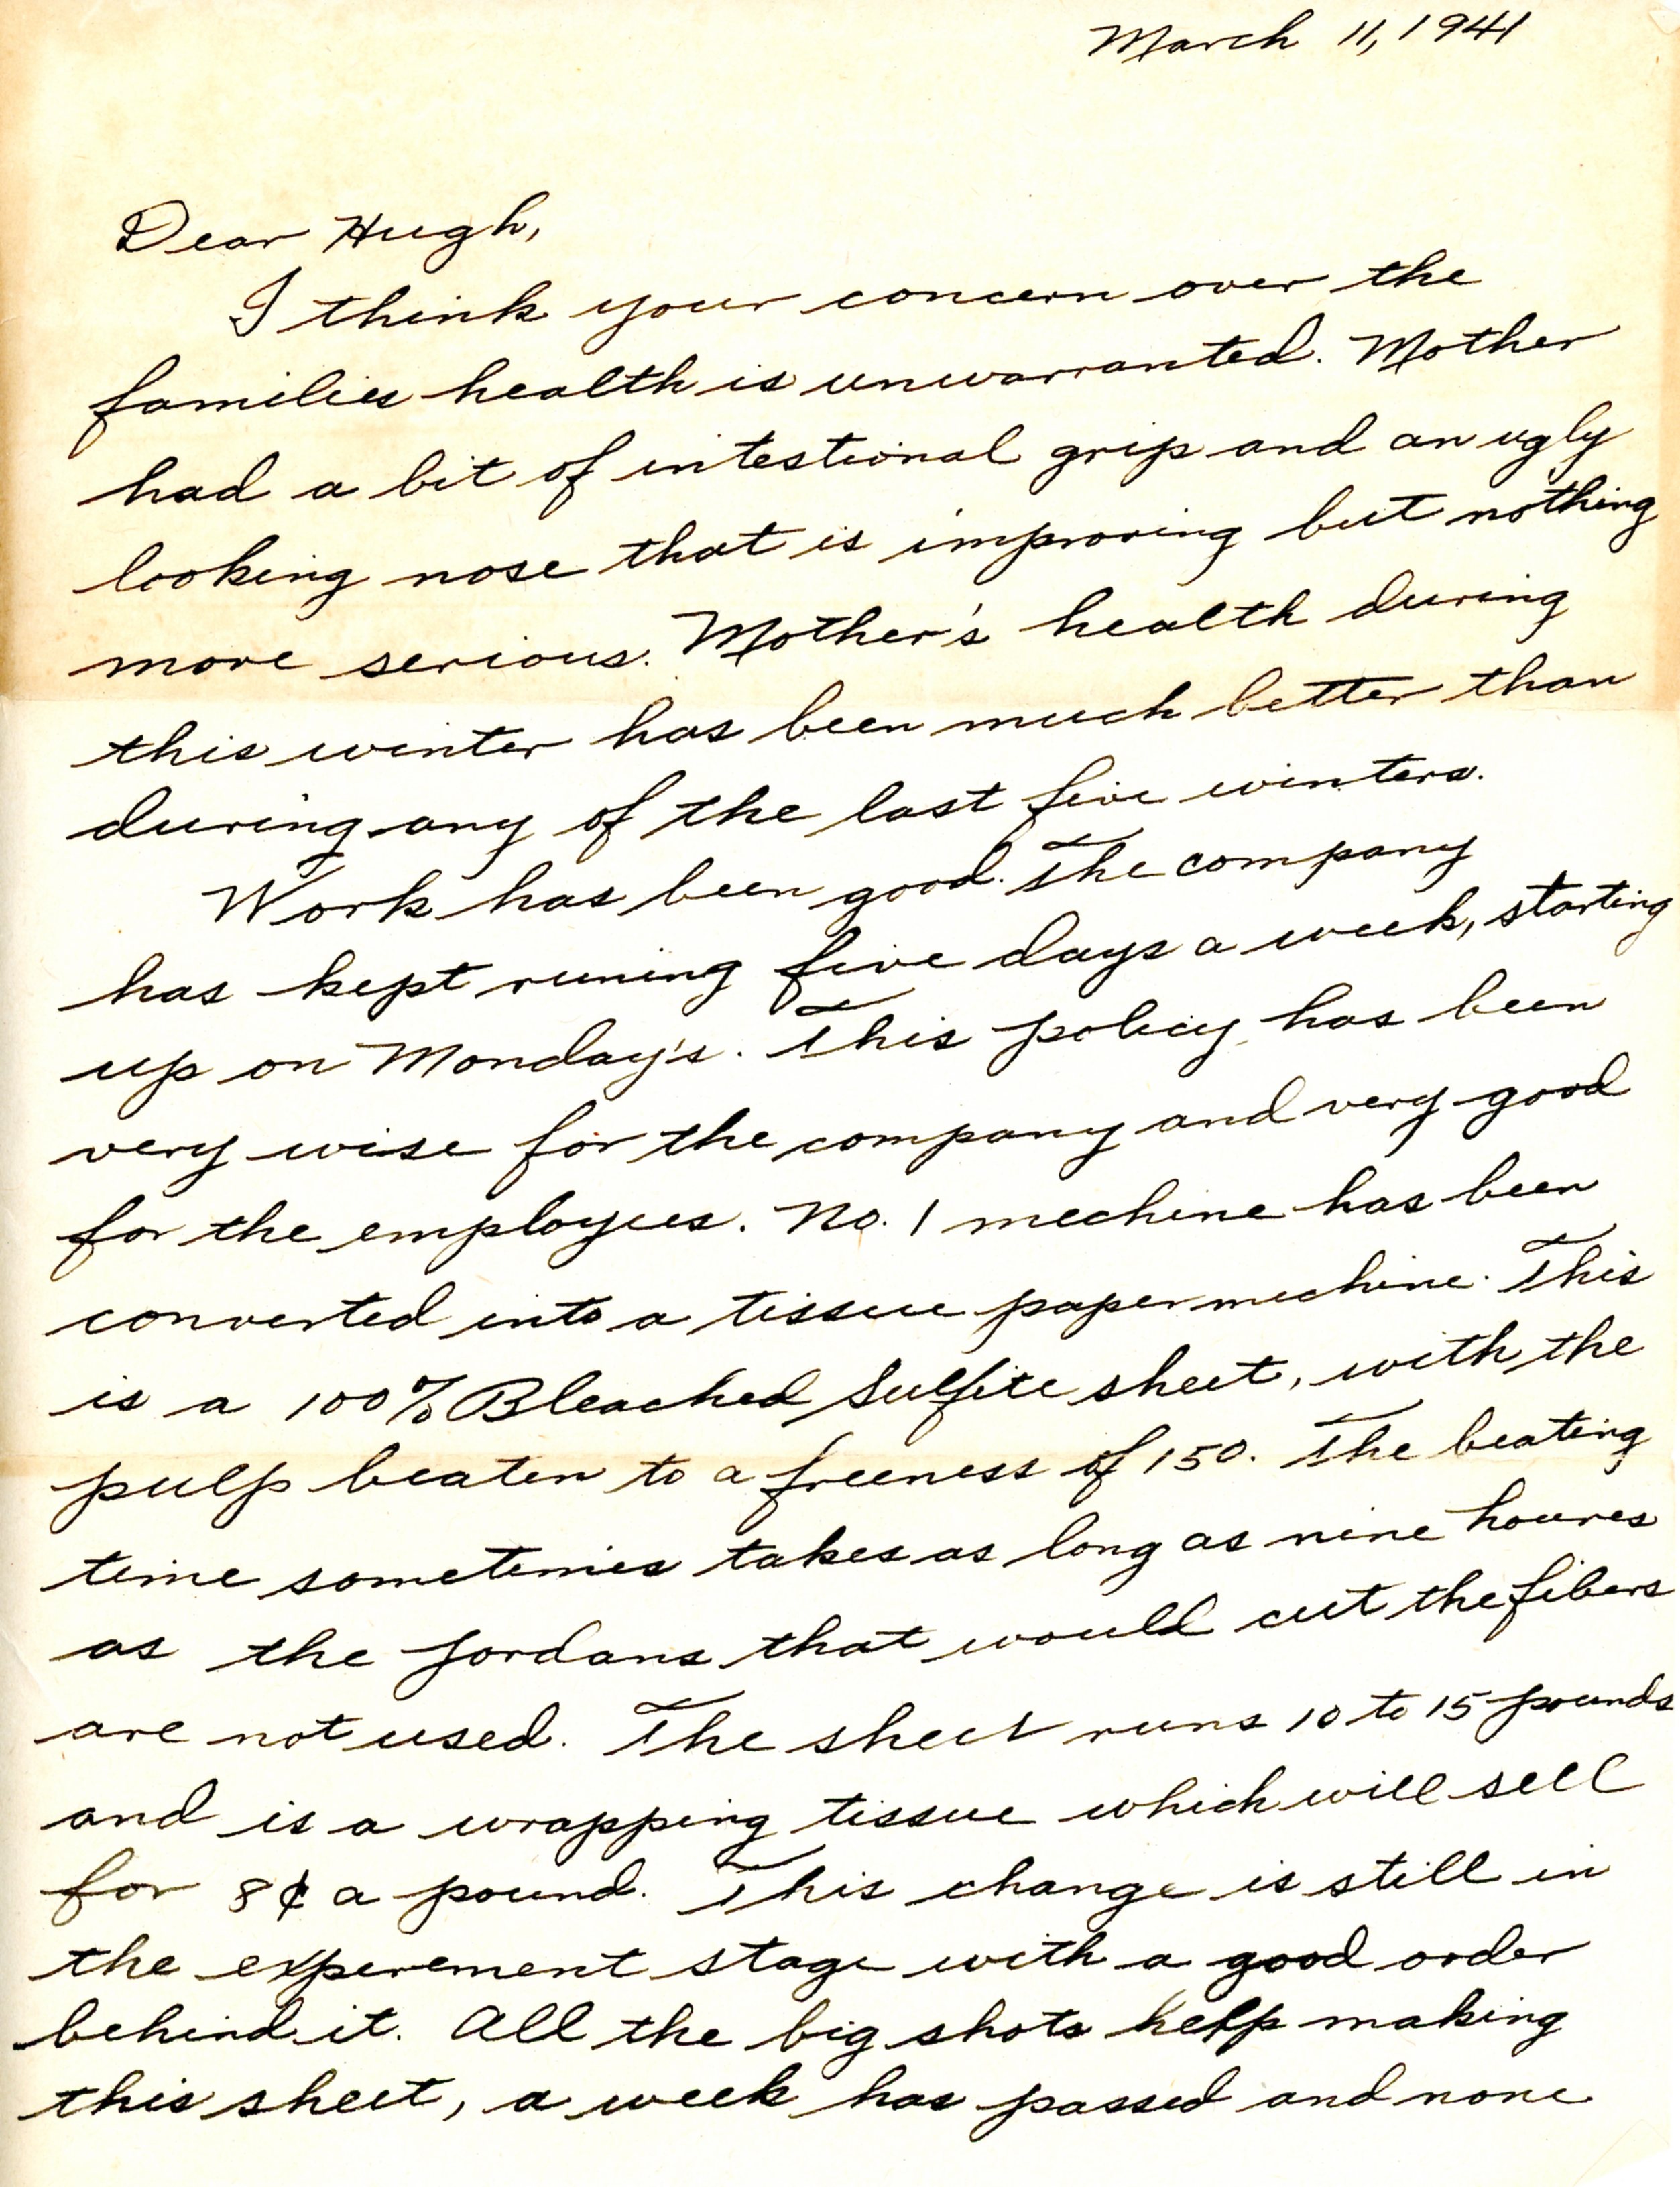 March 11, 1941
Dear Hugh,
I think your concern over the
families health is unwarranted. Mother
had a bit of intestional grip and an ugly
looking nose that is improving but nothing
more serious. Mother's health during
this winter has been much better than
during any of the last five winters.
Work has been good. The company
has kept runing five days a week, starting
up on Monday's. This policy has been
very wise for the company and very good
for the employees. No. 1 mechine has been
converted into a tissue paper mechine. This
is a 100% Bleached Sulfite sheet, with the
pulp beaten to a freeness of 150. The beating
time sometimes takes as long as nine houres
as the Jordans that would cut the fibers
are not used. The sheet runs 10 to 15 pounds
and is a wrapping tissue which will sell
for 8¢ a pound. This change is still in
the experement stage with a good order
behind it. All the big shots help making
this sheet, a week has passed and none